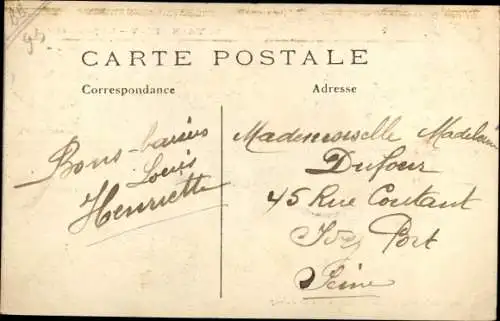 CARTE POSTALE
Correspondance
Adresse
Bons baisers
Louis
Henriette
Mademoiselle Madeleine
Dufour
45 Rue Coutant
Ivry Port
Seine